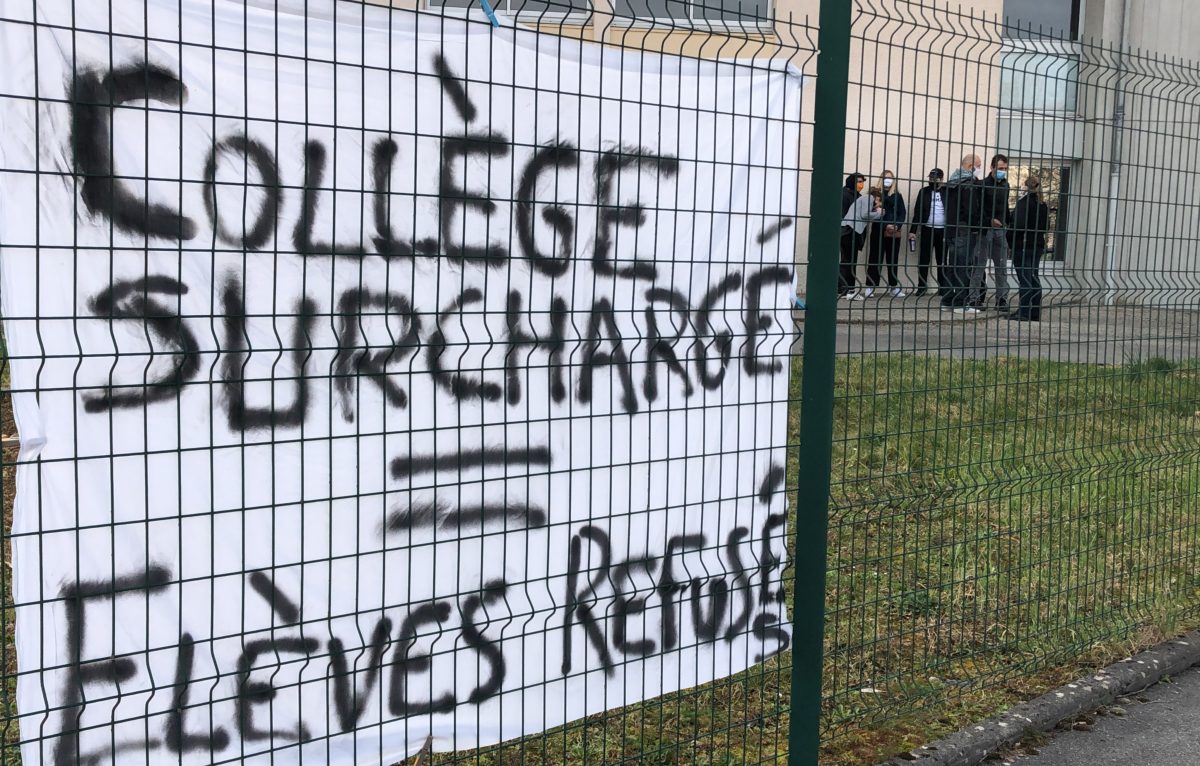 COLLÈGE
SURCHARGÉ
=
ELÈVES REFUSÉS